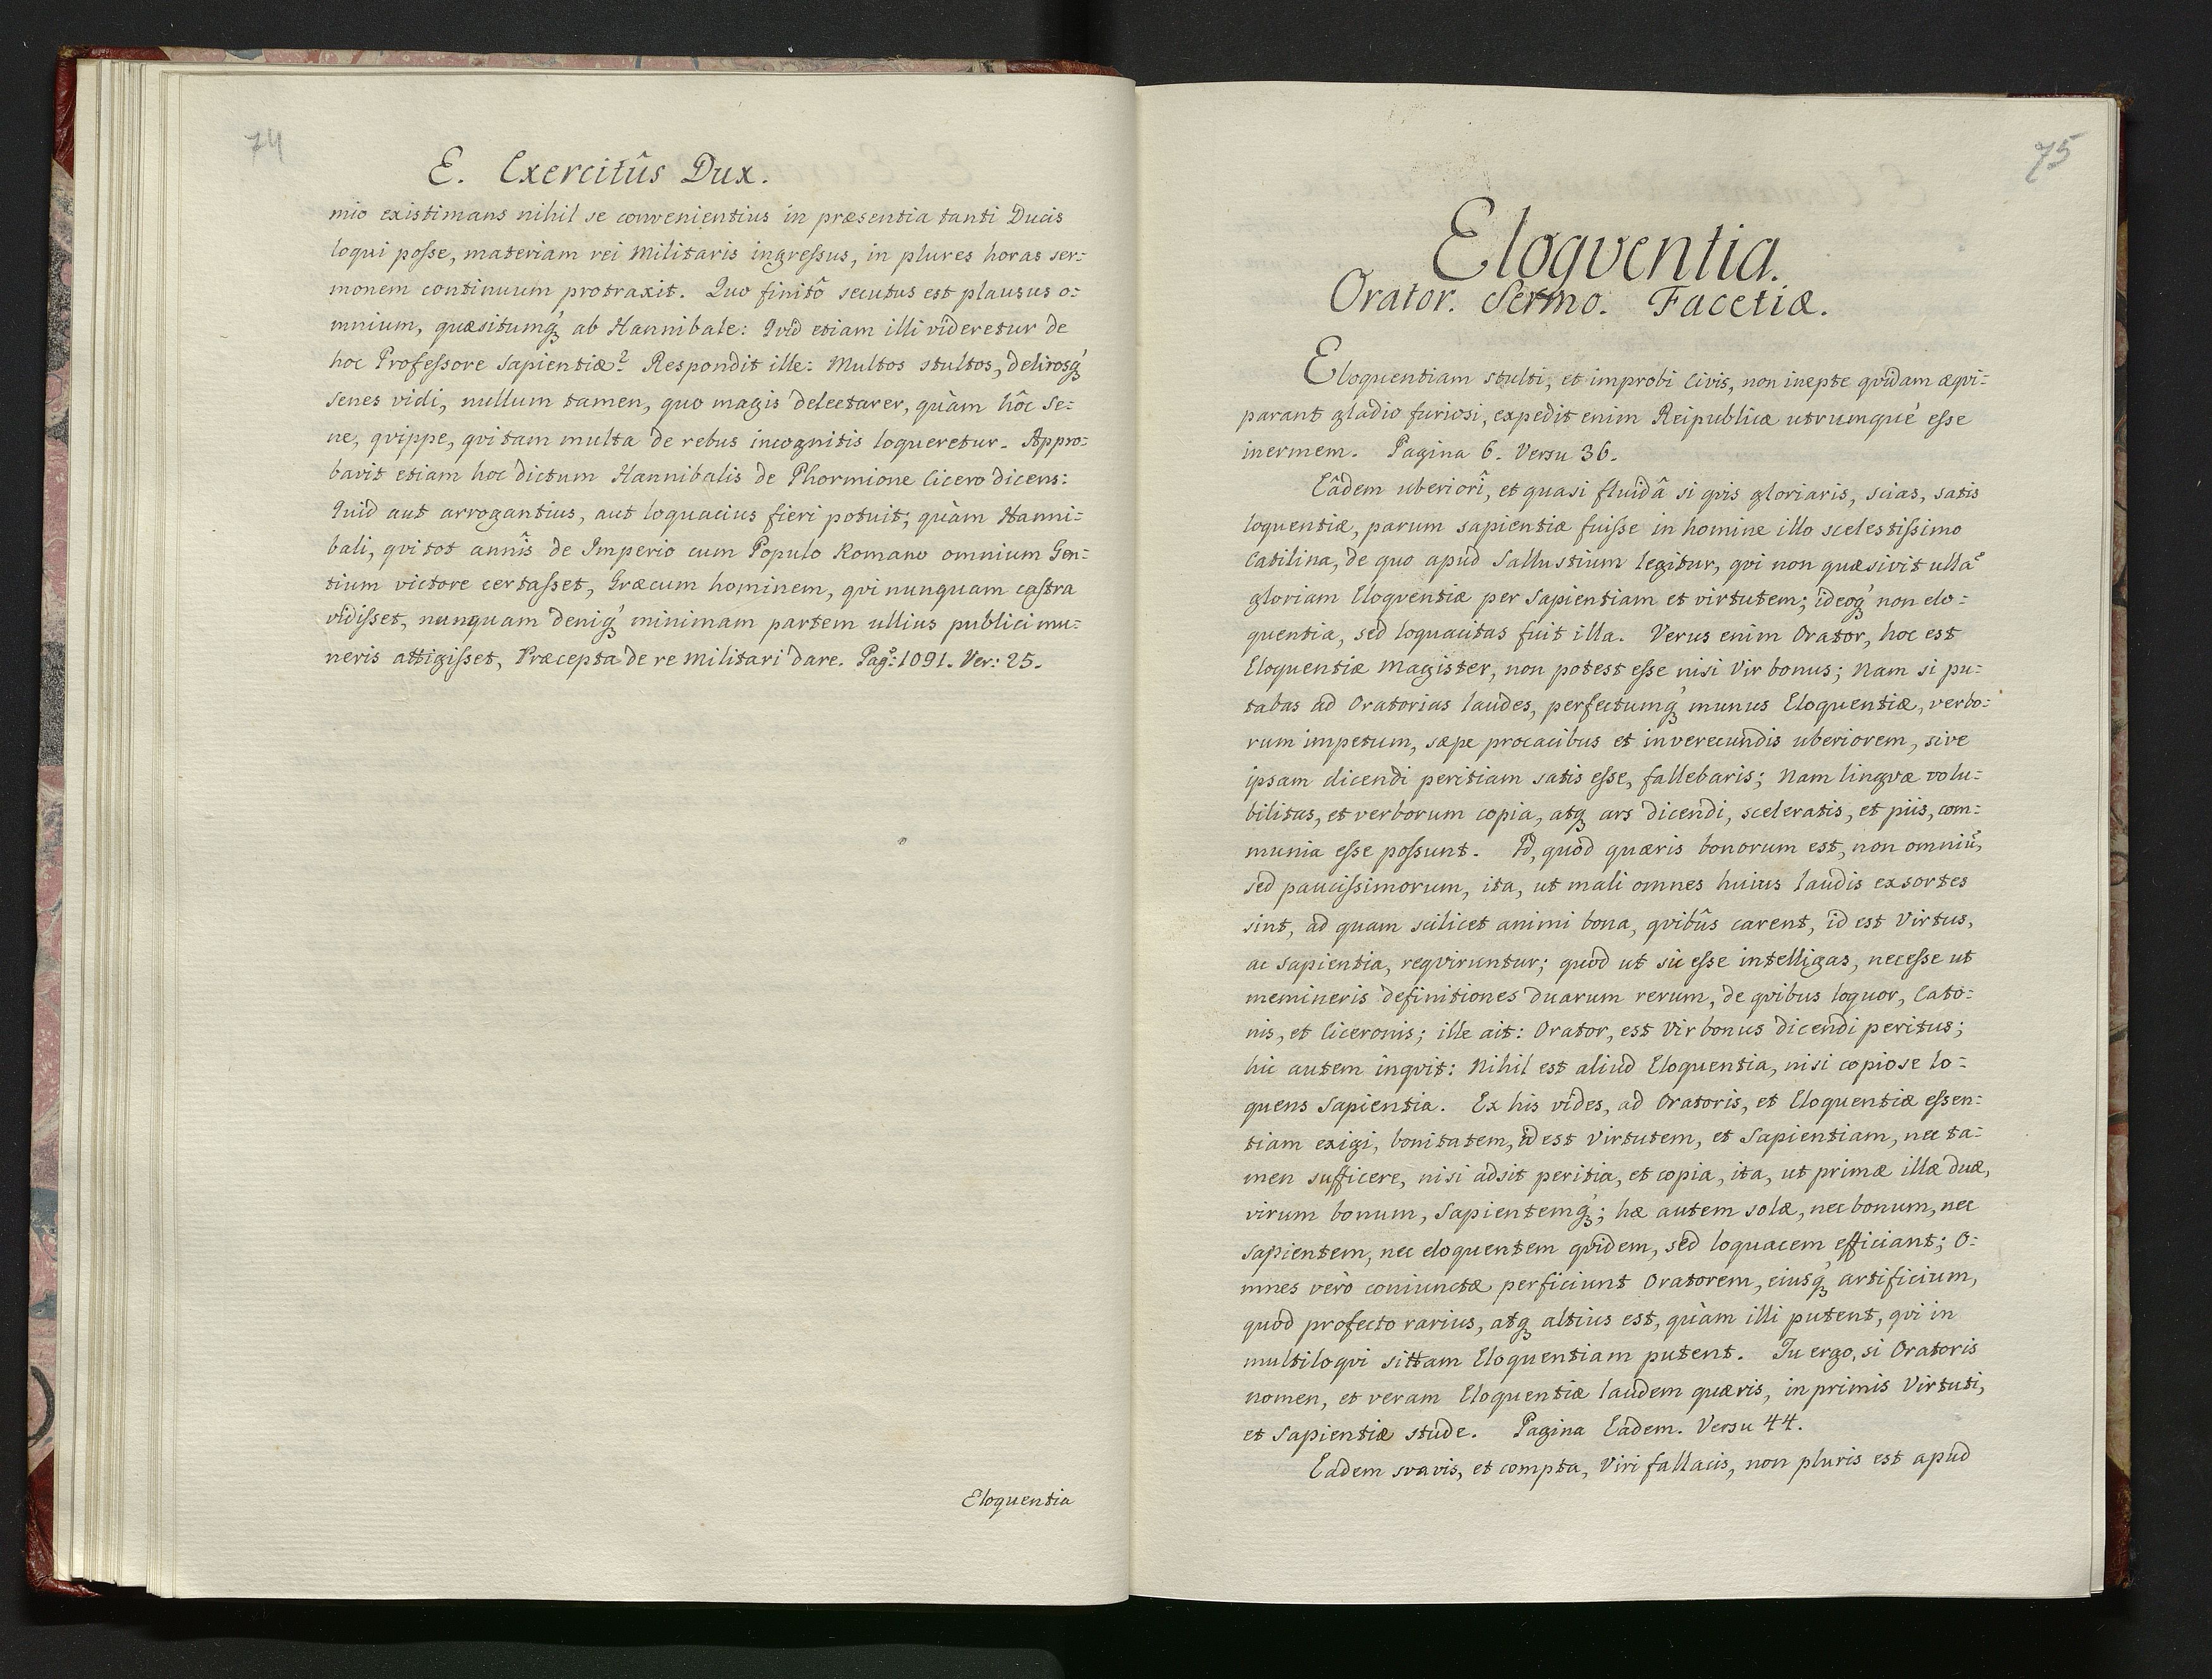 74
E. Exercitûs Dux.
mio existimans nihil se convenientius in præsentia tanti Ducis
loqui posse, materiam rei Militaris ingressus, in plures horas ser=
monem continuum protraxit. Quo finitô secutus est plausus o=
mnium, quæsitumq́ꝫ ab Hannibale: Qvid etiam illi videretur de
hoc Professore Sapientiæ? Respondit ille: Multos stultos, delirosq́ꝫ
senes vidi, nullum tamen, quo magis delectarer, quàm hôc se=
ne, qvippe, qvi tam multa de rebus incognitis loqueretur. Appro=
bavit etiam hoc dictum Hannibalis de Phormione Cicero dicens:
Quid aut arrogantius, aut loquacius fieri potuit; quàm Hanni=
bali, qvi tot annîs de Imperio cum Populo Romano omnium Gen=
tium victore certasset, Græcum hominem, qvi nunquam castra
vidisset, nunquam deniq́ꝫ minimam partem ullius publici mu=
neris attigisset, Præcepta de re Militari dare. Pag: 1091. Ver: 25.
Eloquentia
75
Eloqventia.
Orator. Sermo. Facetiæ.
Eloquentiam stulti, et improbi Civis, non inepte qvidam æqvi=
parant gladio furiosi, expedit enim Reipublicæ utrumqué esse
inermem. Pagina 6. Versu 36.
Eâdem uberiorî, et quasi fluidâ si qvis gloriaris, scias, satis
loquentiæ, parum sapientiæ fuisse in homine illo scelestissimo
Catilina, de quo apud Sallustium legitur, qvi non quæsivit ullã
gloriam Eloqventiæ per Sapientiam et virtutem; ideoq́ꝫ non elo=
quentia, sed loquacitas fuit illa. Verus enim Orator, hoc est
Eloquentiæ Magister, non potest esse nisi Vir bonus; Nam si pu=
tabas ad Oratorias laudes, perfectumq́ꝫ munus Eloquentiæ, verbo=
rum impetum, sæpe procacibus et inverecundis uberiorem, sive
ipsam dicendi peritiam satis esse, fallebaris; Nam lingvæ volu=
bilitas, et verborum copia, atqꝫ ars dicendi, sceleratis, et piis, com=
munia esse possunt. Id, quod quæris bonorum est, non omniũ,
sed paucissimorum, ita, ut mali omnes huius laudis exsortes
sint, ad quam scilicet animi bona, qvibûs carent, id est Virtus,
ac Sapientia, reqviruntur; quod ut sic esse intelligas, necesse ut
memineris definitiones duarum rerum, de qvibus loquor, Cato=
nis, et Ciceronis; ille ait: Orator, est Vir bonus dicendi peritus;
hic autem inqvit: Nihil est aliud Eloquentia, nisi copiose lo=
quens Sapientia. Ex his vides, ad Oratoris, et Eloquentiæ essen=
tiam exigi, bonitatem, id est Virtutem, et Sapientiam, nec ta=
men sufficere, nisi adsit peritia, et copia, ita, ut primæ illæ duæ,
virum bonum, Sapientemq́ꝫ; hæ autem solæ, nec bonum, nec
sapientem, nec eloquentem qvidem, sed loquacem efficiant; O=
mnes verò coniunctæ perficiunt Oratorem, eiusq́ꝫ artificium,
quod profecto rarius, atqꝫ altius est, quàm illi putent, qvi in
multiloqvi sittam Eloquentiam putent. Tu ergo, si Oratoris
nomen, et veram Eloquentiæ laudem quæris, in primis Virtuti,
et Sapientiæ stude. Pagina Eâdem. Versu 44.
Eadem svavis, et compta, Viri fallacis, non pluris est apud